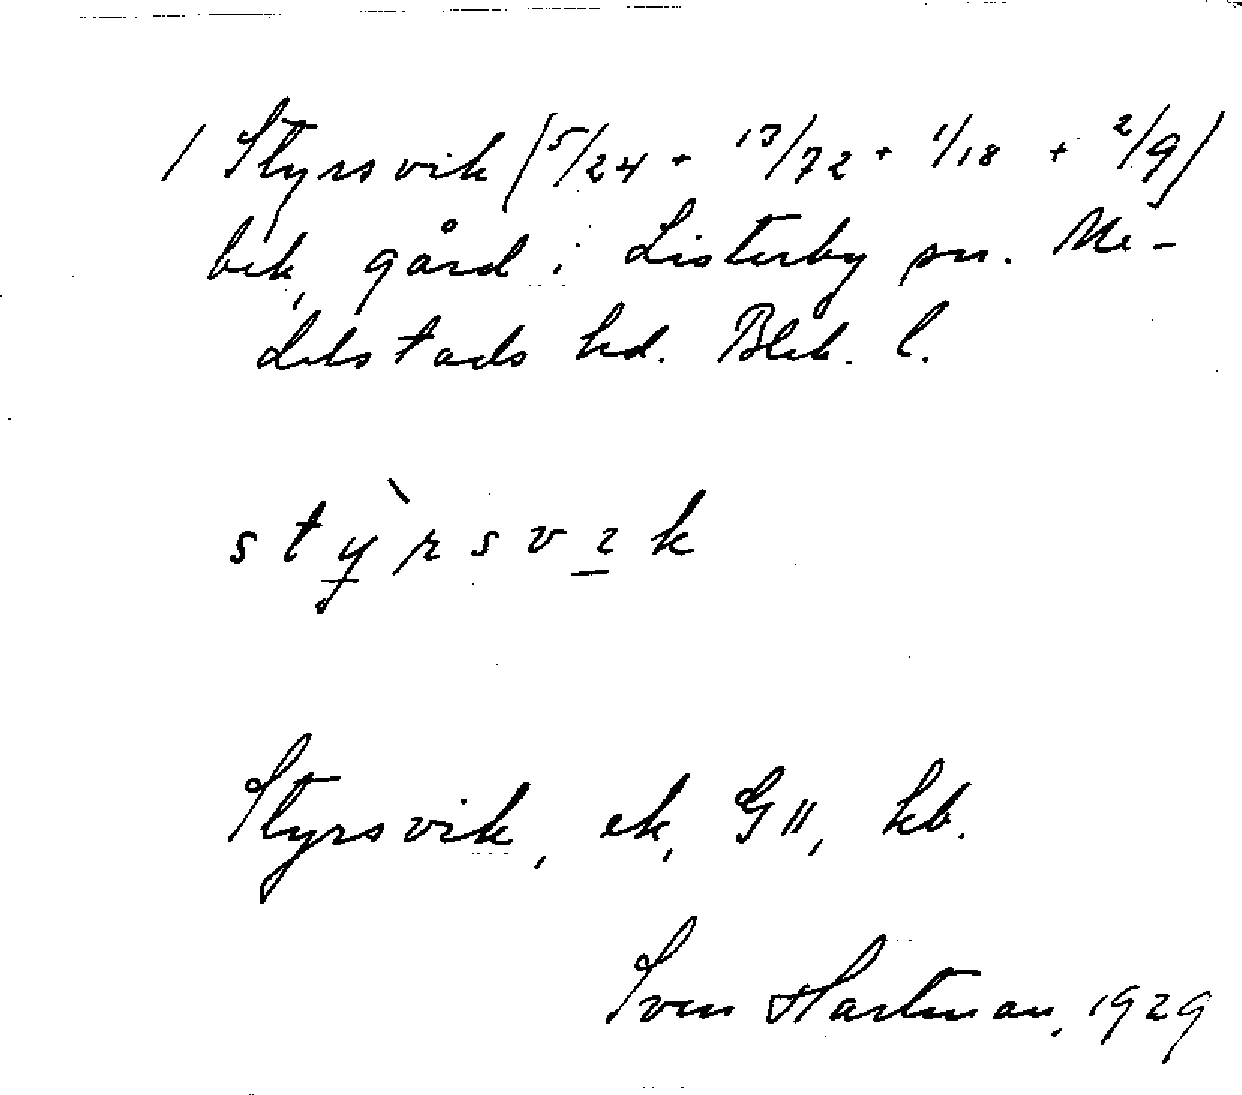 1 Styrsvik (5/24 + 13/72 + 1/18 + 2/9)
bek, gård i Listerby sn. Me-
delstads hd. Blek. l.
stỳ̠rsvı̠k
Styrsvik, ek, G11, kb.
Sven Hartman, 1929